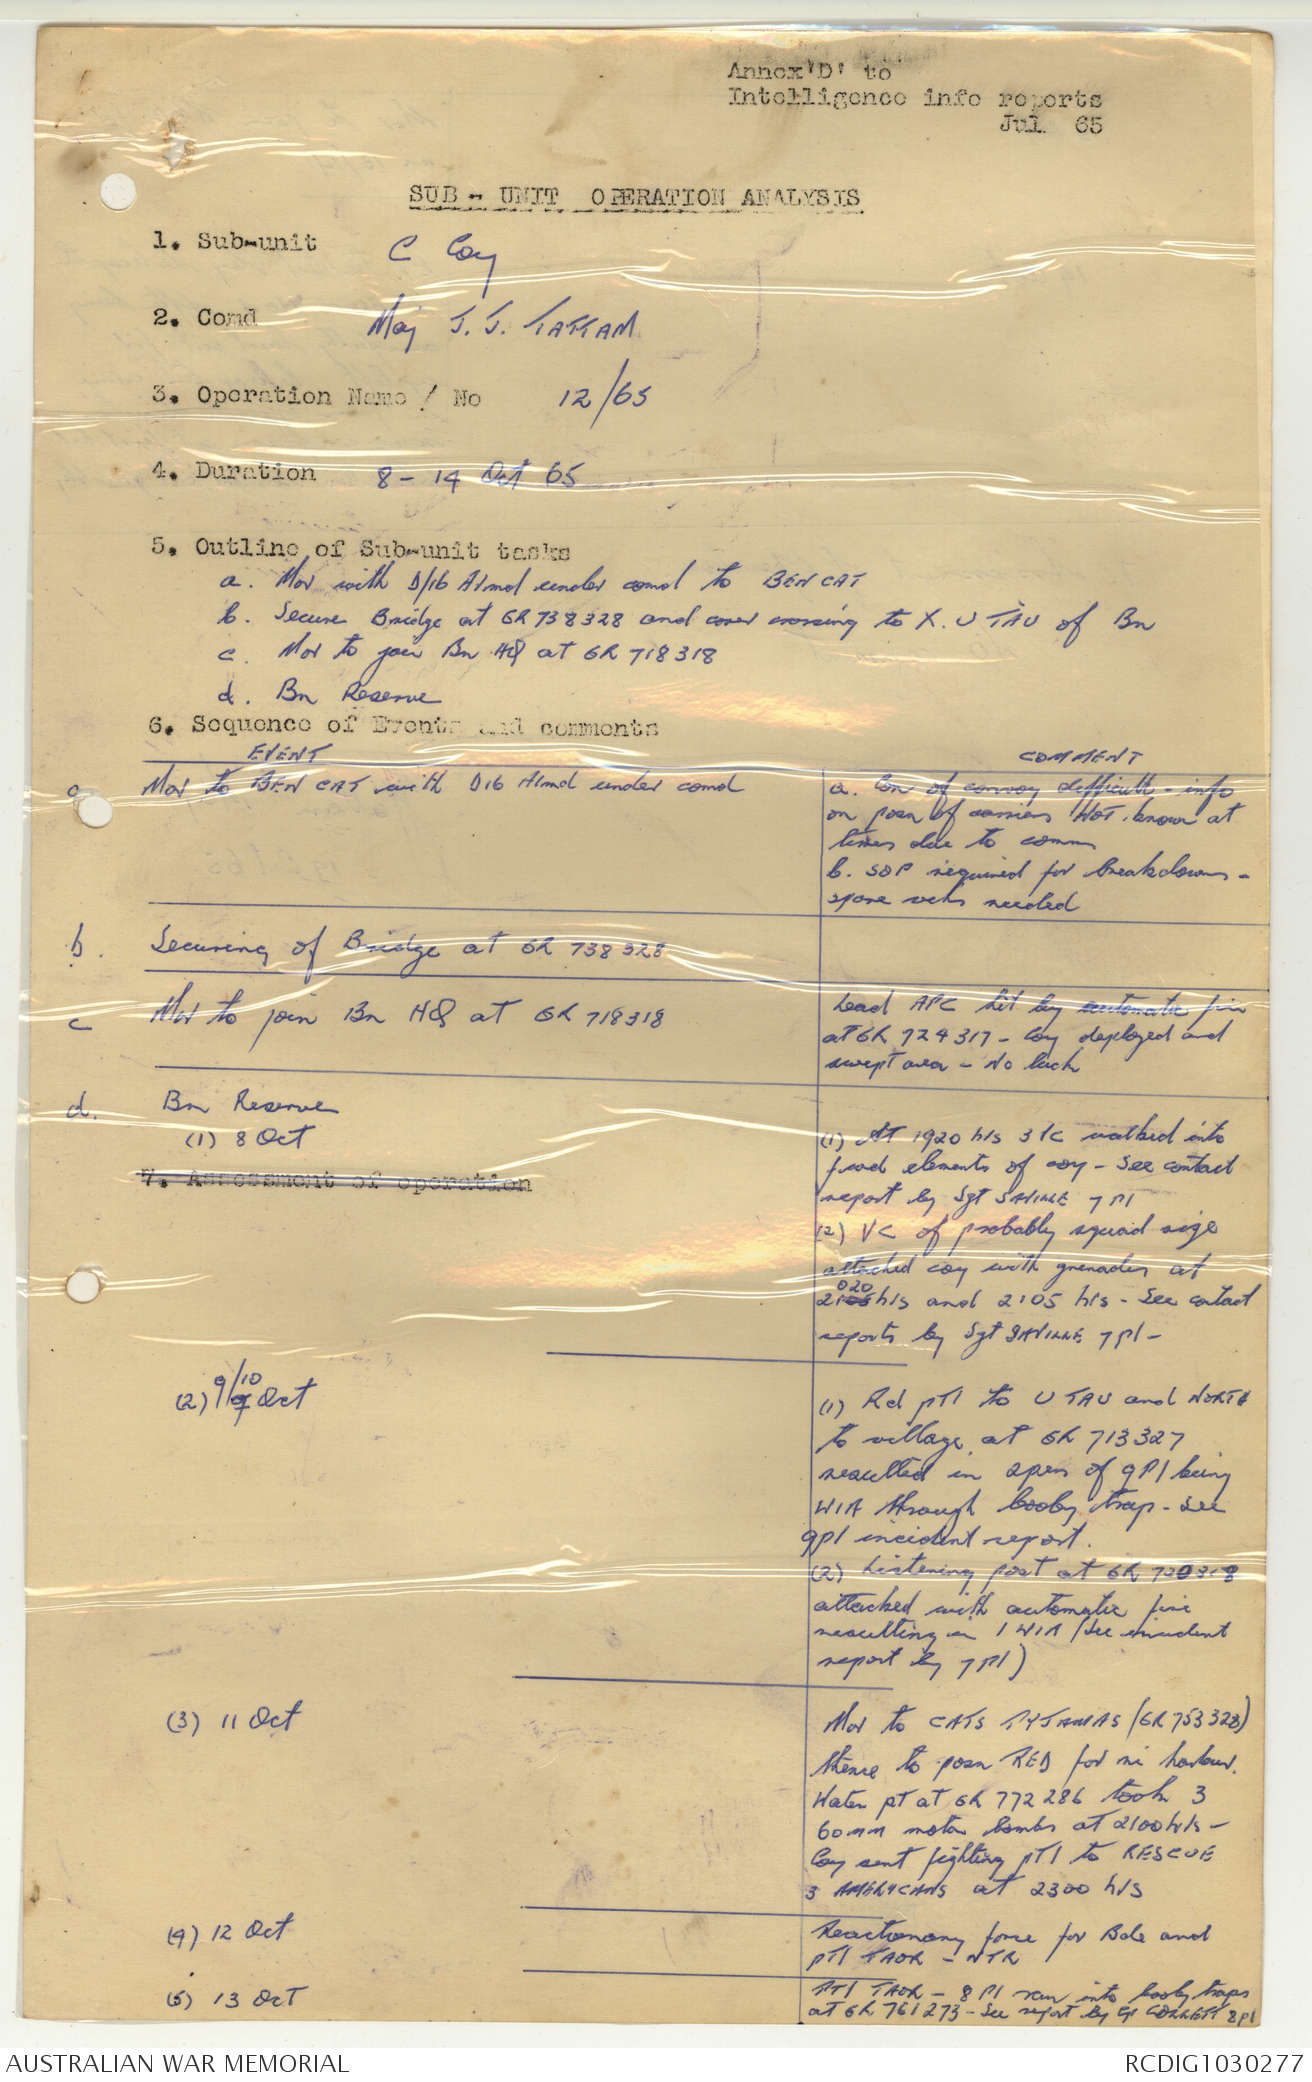 Annex 'D' to
Intelligence info reports
Jul 65
SUB - UNIT OPERATION ANALYSIS
1. Sub-unit C Coy
2. Comd Maj J. J. TATTAM
3. Operation Name / No 12/65
4. Duration 8 - 14 Oct 65
5. Outline of Sub-unit tasks
a. Mov with D/16 Armd under comd to BEN CAT
b. Secure Bridge at GR 738328 and cover crossing to X. U TAU of Bn
c. Mov to join Bn HQ at GR 718318
d. Bn Reserve
6. Sequence of Events and comments
EVENT COMMENT
a. Mov to BEN CAT with D16 Armd under comd
a. Con of convoy difficult - info
on posn of carriers NOT known at
times due to comms
b. SOP required for breakdowns -
spare vehs needed
b. Securing of Bridge at GR 738328
c Mov to join Bn HQ at GR 718318
Lead APC hit by automatic fire
at GR 724317 - Coy deployed and
swept area - No luck
d. Bn Reserve
(1) 8 Oct
7. Assessment of operation
(1) At 1920 hrs 3 VC walked into
fwd elements of coy - See contact
report by Sgt SAVILLE 7 Pl
(2) VC of probably squad size
attacked coy with grenades at
2020 hrs and 2105 hrs - See contact
reports by Sgt SAVILLE 7 pl -
(2) 9/10 Oct
(1) Rd ptl to U TAU and NORTH
to village at GR 713327
resulted in 2 pers of 9 Pl being
WIA through booby trap - See
9pl incident report.
(2) Listening post at GR 720318
attacked with automatic fire
resulting in 1 WIA (See incident
report by 7 Pl)
(3) 11 Oct
Mov to CATS PYJAMAS (GR 753323)
thence to posn RED for ni harbour.
Water pt at GR 772286 took 3
60mm motor bombs at 2100 hrs -
Coy sent fighting ptl to RESCUE
3 AMERYCANS at 2300 hrs
(4) 12 Oct
Reactionary force for Bde and
ptl TAOR - NTR
(5) 13 Oct
PTl TAOR - 8 Pl ran into booby traps
at GR 761273 - See report by COLLETT 8pl
AUSTRALIAN WAR MEMORIAL RCDIG1030277